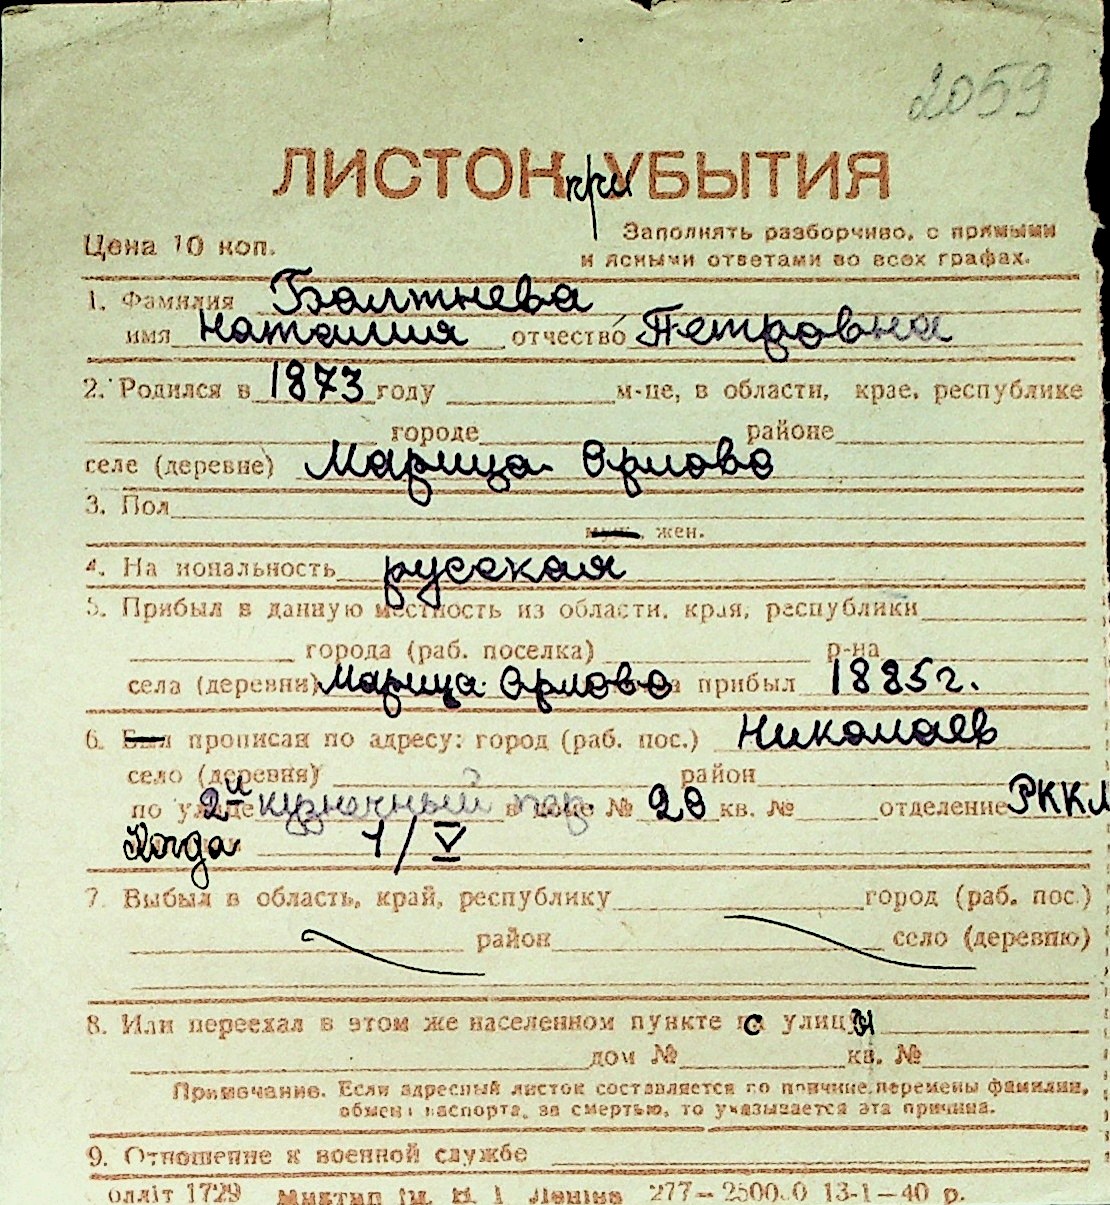 2059
ЛИСТОК при УБЫТИЯ
Цена 10 коп.
Заполнять разборчиво, с прямыми
и ясными ответами во всех графах.
1. Фамилия Болтнева
имя Наталия отчество Петровна
2. Родился в 1873 году м-це, в области, крае, республике
городе районе
селе (деревне) Марица Орлово
3. Пол
муж. жен.
4. На иональность русская
5. Прибыл в данную местность из области, края, республики
города (раб. поселка) р-на
села (деревни) Марица Орлово прибыл 1885 г.
6. Был прописан по адресу: город (раб. пос.) Николаев
село (деревня) район
по улице 2й кузнечный пер. в доме № 20 кв. № отделение РККМ
Когда 1/V
7. Выбыл в область, край, республику город (раб. пос.)
район село (деревню)
8. Или переехал в этом же населенном пункте с улицы
дом № кв. №
Примечание. Если адресный листок составляется по причине перемены фамилии,
обмена паспорта, за смертью, то указывается эта причина.
9. Отношение к военной службе
олліт 1729 ім. В. І. Леніна 277— 13-1—40 р.